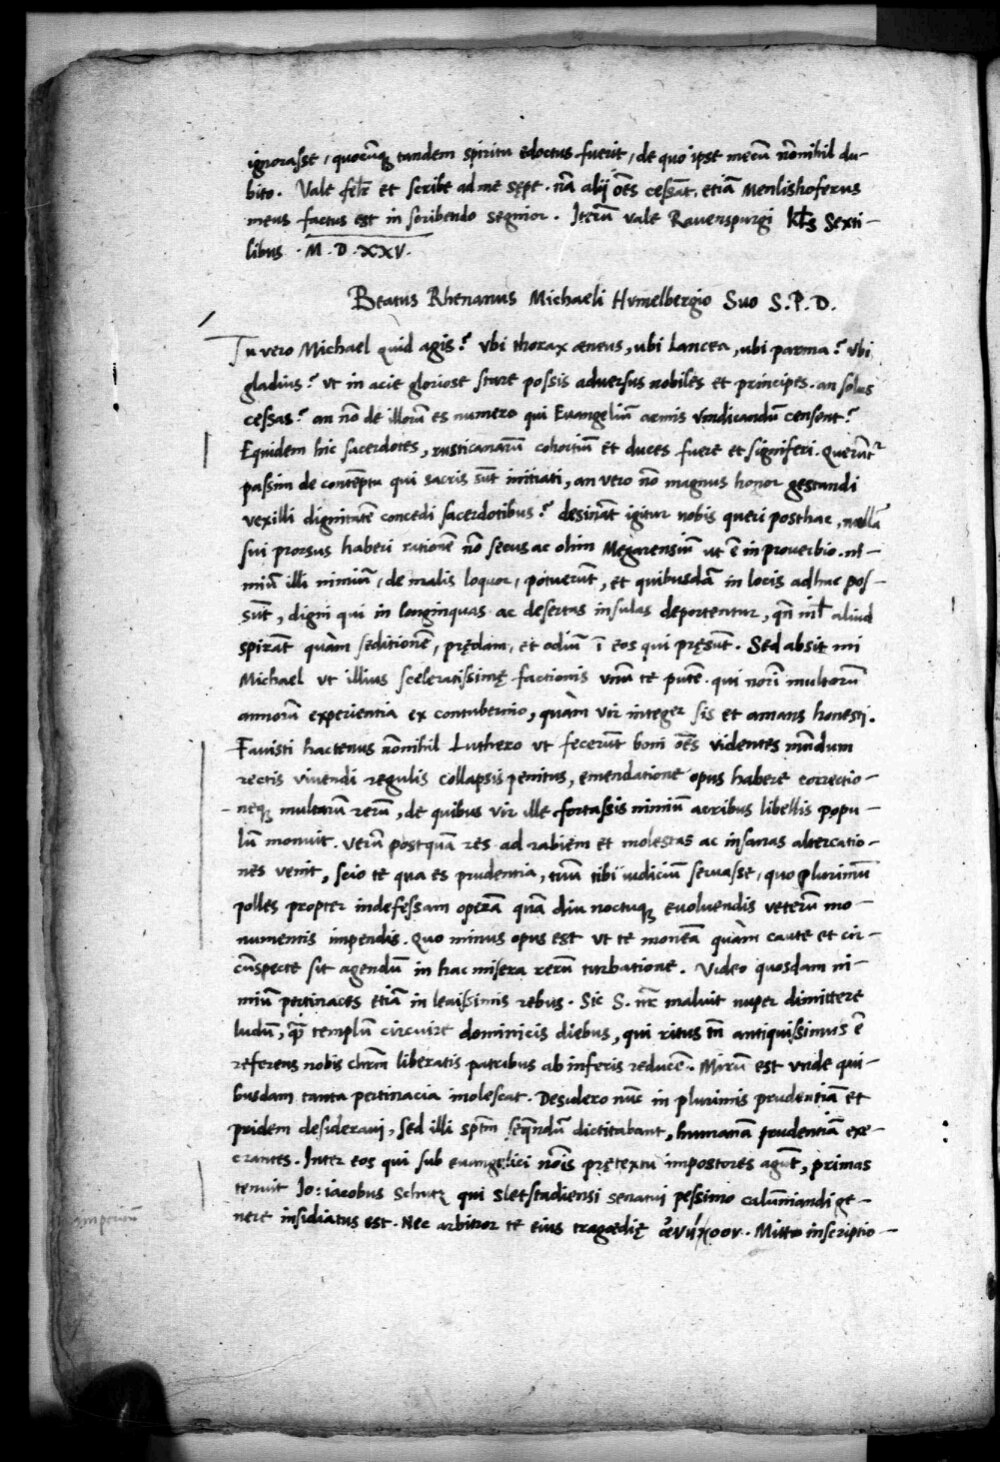 ignorasse, quocūq; tandem spiritu edoctus fuerit, de quo ipse mecū nōnihil du-
bito. Vale fel̄r et scribe ad me sępe. nā alij ōēs cessāt, etiā Menlishoferus
meus factus est in scribendo segnior. Iterū vale Rauenspurgi kl̄s Sexti-
libus .M.D.XXV.
Beatus Rhenanus Michaeli Hvmelbergio Suo S.P.D.
Tu vero Michael quid agis? vbi thorax æneus, ubi Lancea, ubi parma? vbi
gladius? vt in acie gloriose stare possis aduersus nobiles et principes. an solus
cessas? an nō de illorū es numero qui Euangeliū armis vindicandū censent?
Equidem hic sacerdotes, rusticanarū cohortiū et duces fuere et signiferi. Querāt͛
passim de contēptu qui sacris sūt initiati, an vero nō magnus honor gestandi
vexilli dignitatē concedi sacerdotibus? desināt igitur nobis queri posthac, nullā
sui prorsus haberi rationē nō secus ac olim Megarensiū ut ē in prouerbio. ni-
miū illi nimiū, de malis loquor, potuerūt, et quibusdā in locis adhuc pos-
sūt, digni qui in longinquas ac desertas insulas deportentur, qn̄ nil̄ aliud
spirāt quàm seditionē, prędam, et odiū ī eos qui pręsūt. Sed absit mi
Michael vt illius sceleratissimę factionis vnū te putē. qui norī multorū
annorū experientia ex contubernio, quàm vir integer sis et amans honesti.
Fauisti hactenus nōnihil Luthero vt fecerūt boni ōēs videntes mūdum
rectis viuendi regulis collapsis penitus, emendatione opus habere correctio-
neq; multarū rerū, de quibus vir ille fortassis nimiū acribus libellis popu-
lū monuit. verū postquā res ad rabiem et molestas ac insanas altercatio-
nes venit, scio te qua es prudentia, tuū tibi iudiciū seruasse, quo plurimū
polles propter indefessam operā quā diu noctuq; euoluendis veterū mo-
numentis impendis. Quo minus opus est vt te moneā quàm caute et cir-
cūspecte sit agendū in hac misera rerū turbatione. Video quosdam ni-
miū pertinaces etiā in leuissimis rebus. Sic S. nr̄ maluit nuper dimittere
ludū, q̄ templū circuire dominicis diebus, qui ritus tn̄ antiquissimus ē
referens nobis chrm̄ liberatis patribus ab inferis reducē. Mirū est vnde qui-
busdam tanta pertinacia inolescat. Desidero nūc in plurimis prudentiā et
pridem desideraui, sed illi sptm̄ seq̄ndū dictitabant, humanā prudentiā exe-
crantes. Inter eos qui sub euangelici nōis prętextu impostores agūt, primas
tenuit Io: iacobus Schutz qui Sletstadiensi senatui pessimo calumniandi ge-
nere insidiatus est. Nec arbitror te eius tragœdię ἀνήκοον. Mitto inscriptio-